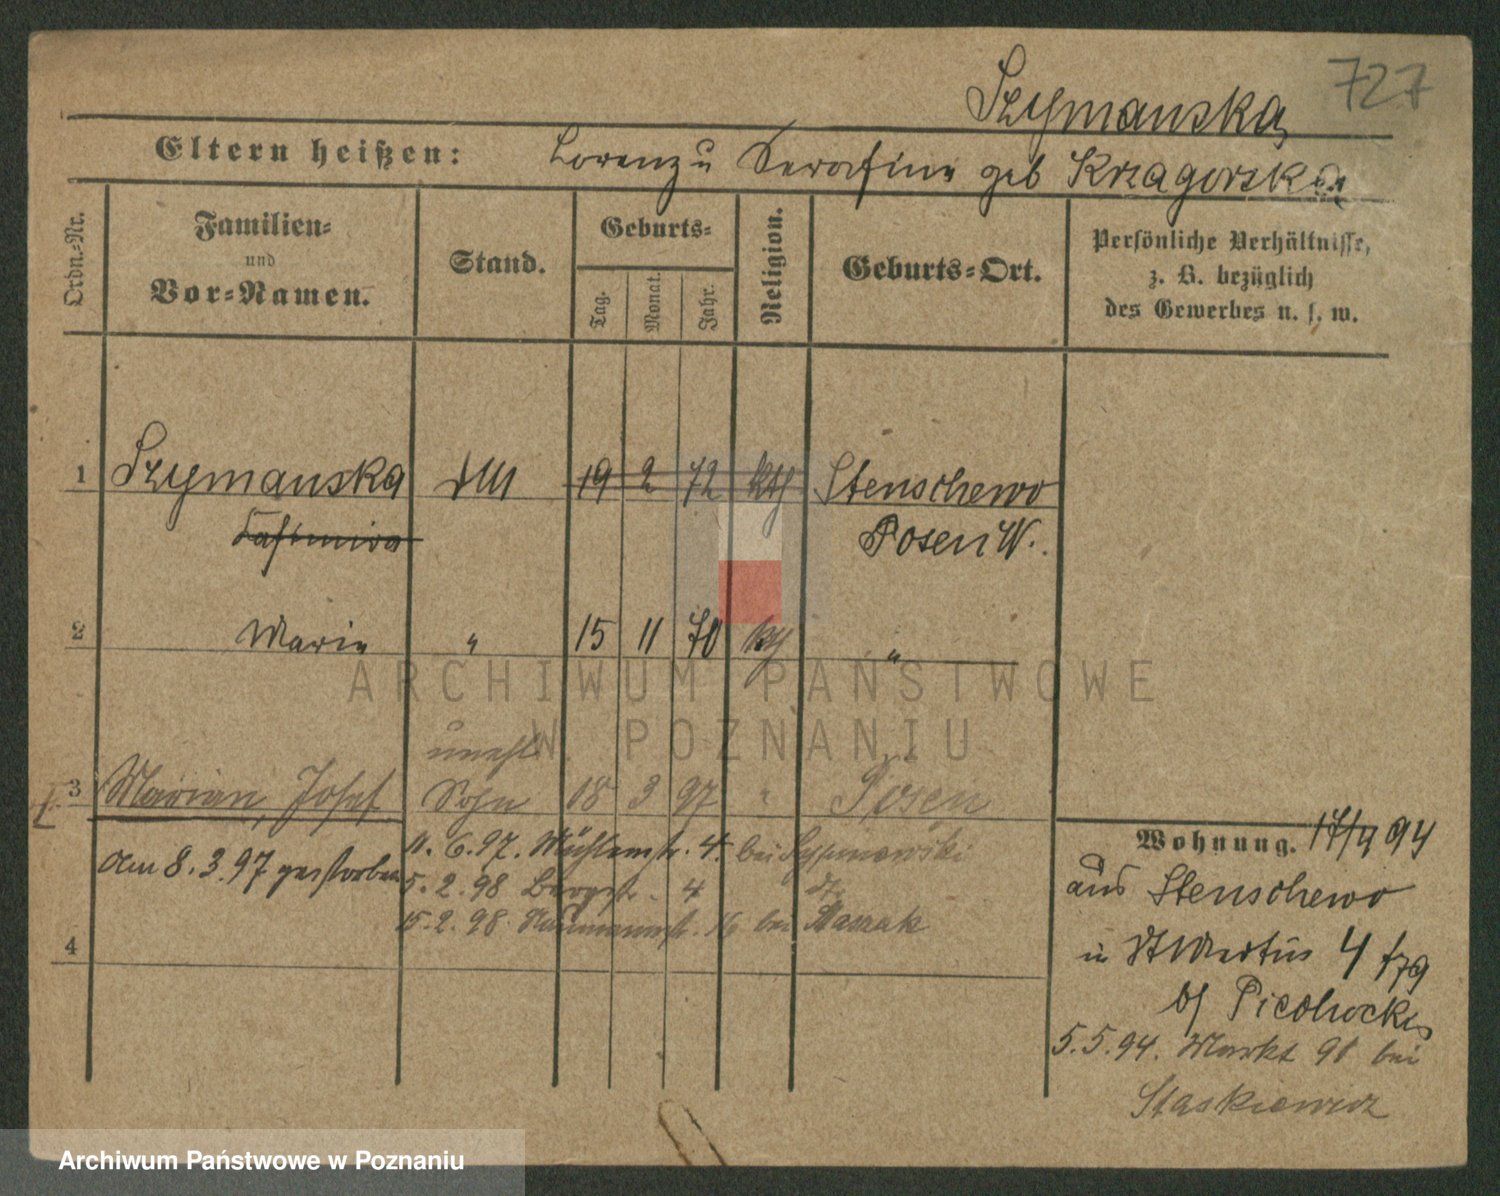 727
Szymanska
Eltern heißen: Lorenz u Serafine geb Krzagorska
Ordn.-Nr.
Familien-
und
Vor-Namen.
Stand.
Geburts-
Tag.
Monat.
Jahr.
Religion.
Geburts-Ort.
Persönliche Verhältnisse,
z. B. bezüglich
des Gewerbes u. s. w.
1 Szymanska 19 2 72 kth Stenschewo
Kasimira Posen W.
2 Marie " 15 11 70 kth "
unehl.
3 Marian, Josef Sohn 18 3 97 " Posen
am 8.3.97 gestorben
11.6.97. Mühlenstr. 4. bei
5.2.98 Bergstr. 4 dto
15.2.98 Naumannstr. 16 bei Staszak
4
Wohnung. 17/4 94
aus Stenschewo
in St Martin 4
bei
5.5.94. Markt 91 bei
Staskiewicz
ARCHIWUM PAŃSTWOWE
W POZNANIU
Archiwum Państwowe w Poznaniu